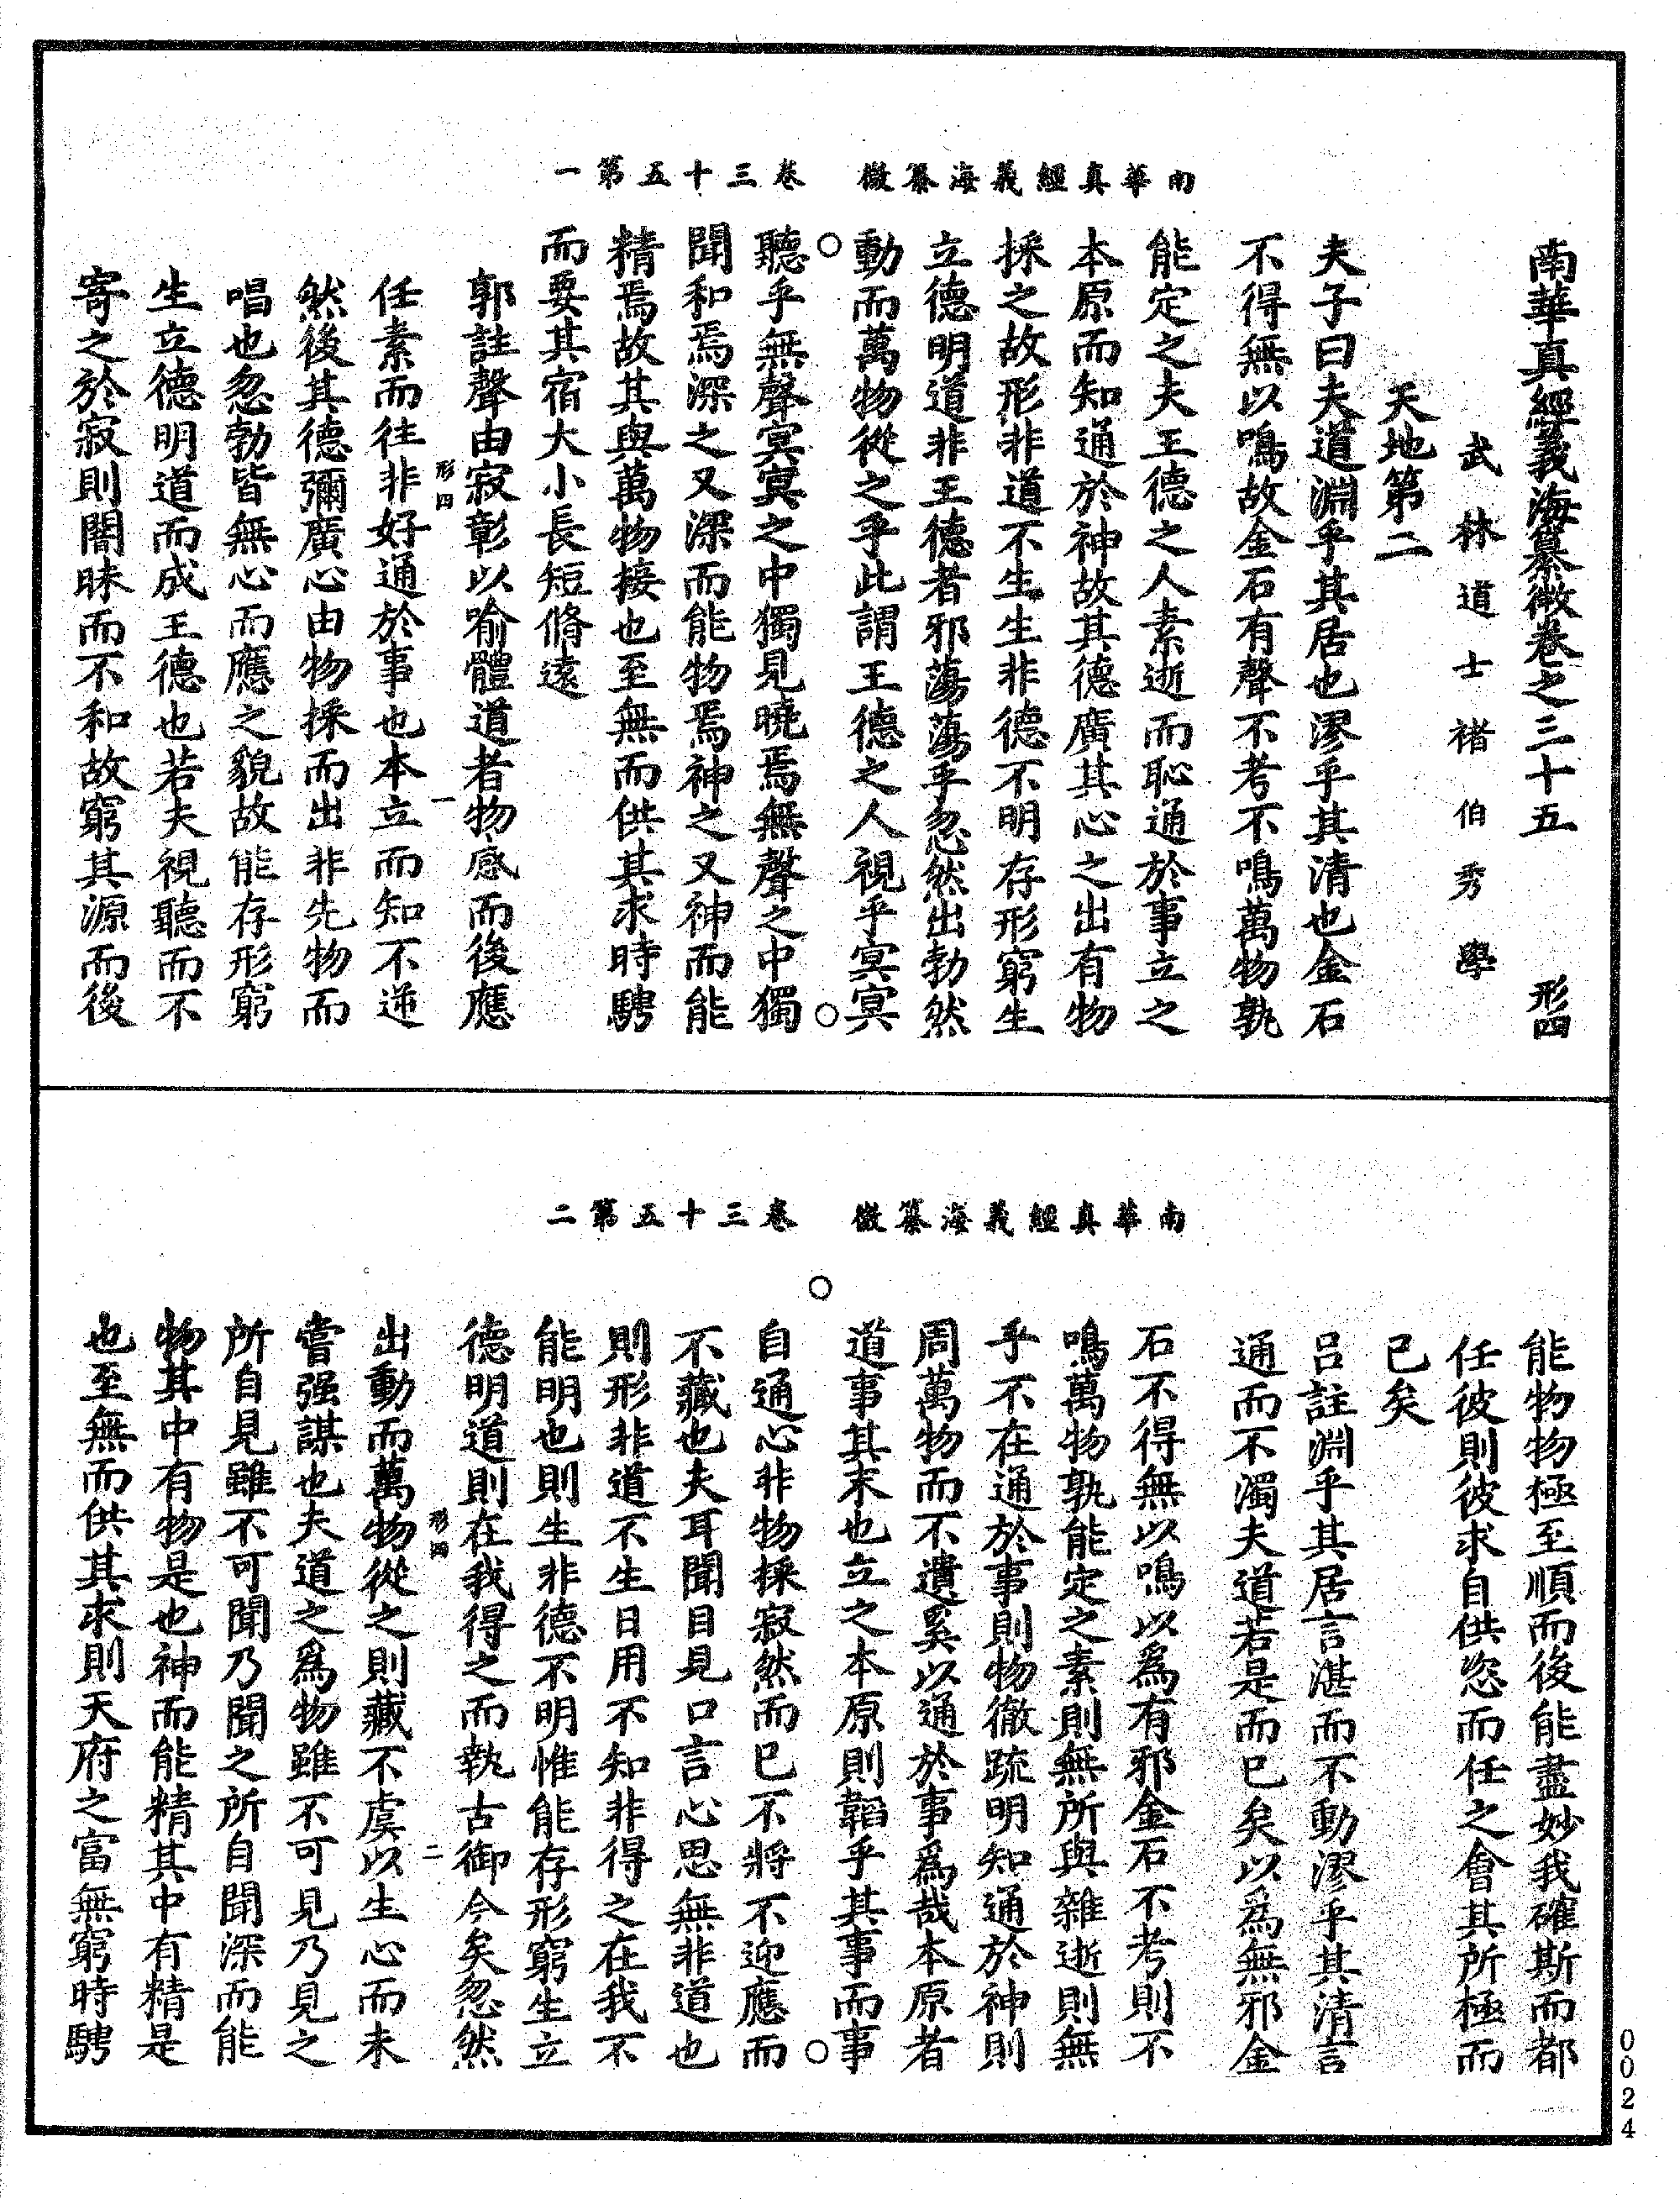 南華真經義海纂微　卷三十五第一
南華真經義海纂微卷之三十五　形四
武林道士褚伯秀學
天地第二
夫子曰夫道淵乎其居也漻乎其清也金石
不得無以鳴故金石有聲不考不鳴萬物孰
能定之夫王德之人素逝而恥通於事立之
本原而知通於神故其德廣其心之出有物
採之故形非道不生生非德不明存形窮生
立德明道非王德者邪蕩蕩乎忽然出勃然
動而萬物從之乎此謂王德之人視乎冥冥
聽乎無聲冥冥之中獨見曉焉無聲之中獨
聞和焉深之又深而能物焉神之又神而能
精焉故其與萬物接也至無而供其求時騁
而要其宿大小長短脩遠
郭註聲由寂彰以喻體道者物感而後應
形四　一
任素而往非好通於事也本立而知不逆
然後其德彌廣心由物採而出非先物而
唱也忽勃皆無心而應之貌故能存形窮
生立德明道而成王德也若夫視聽而不
寄之於寂則闇昧而不和故窮其源而後
南華真經義海纂微　卷三十五第二
能物物極至順而後能盡妙我確斯而都
任彼則彼求自供恣而任之會其所極而
已矣
呂註淵乎其居言湛而不動漻乎其清言
通而不濁夫道若是而已矣以為無邪金
石不得無以鳴以為有邪金石不考則不
鳴萬物孰能定之素則無所與雜逝則無
乎不在通於事則物徹疏明知通於神則
周萬物而不遺奚以通於事為哉本原者
道事其末也立之本原則韜乎其事而事
自通心非物採寂然而已不將不迎應而
不藏也夫耳聞目見口言心思無非道也
則形非道不生日用不知非得之在我不
能明也則生非德不明惟能存形窮生立
德明道則在我得之而執古御今矣忽然
形四　二
出動而萬物從之則藏不虞以生心而未
嘗强謀也夫道之為物雖不可見乃見之
所自見雖不可聞乃聞之所自聞深而能
物其中有物是也神而能精其中有精是
也至無而供其求則天府之富無窮時騁
0024